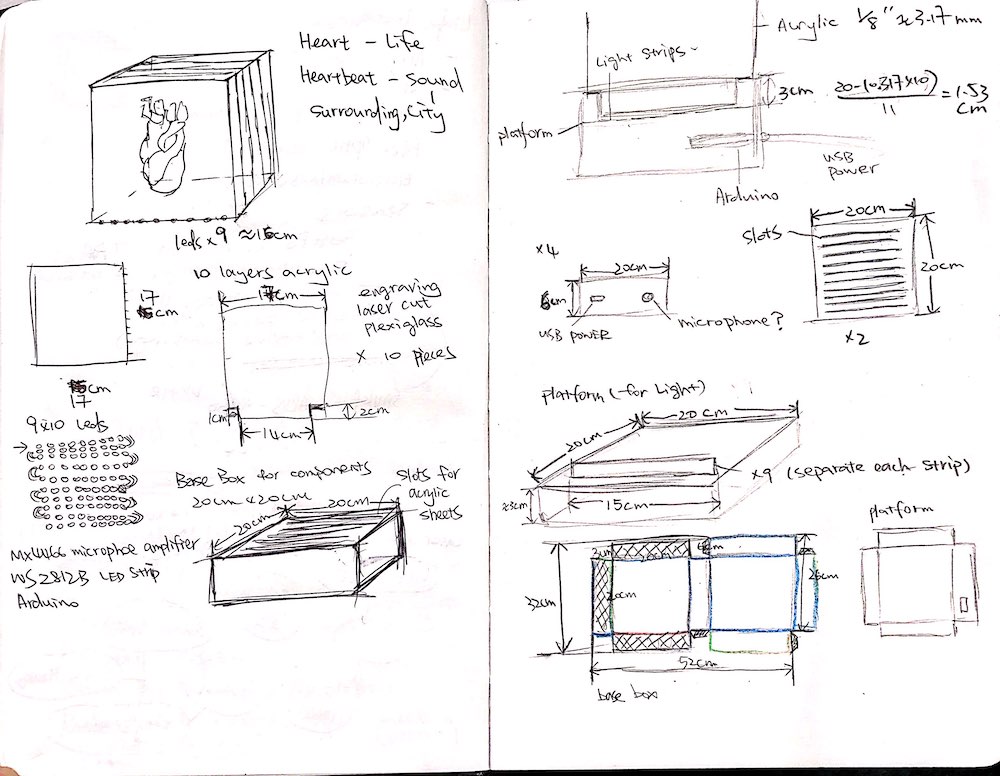 Heart - Life
Heartbeat - Sound
Surrounding, City
leds x 9 ≈ 15cm
10 layers acrylic
17cm
engraving
laser cut
plexiglass
x 10 pieces
17
cm
cm
17
1cm
2cm
14cm
9x10 Leds
Base Box for components
20cm x 20cm
20cm
20cm
slots for
acrylic
sheets
MX4466 microphoe amplifier
WS2812B LED Strip
Arduino
Acrylic 1/8" ≈ 3.17 mm
Light Strips
3cm
20-(0.317x10)
11
= 1.53
cm
platform
USB
Power
Arduino
x4
20cm
6cm
USB POWER
microphone?
20cm
slots
20cm
x2
platform (for Light)
20cm
20cm
x9 (separate each strip)
3cm
15cm
platform
32cm
2cm
6cm
20cm
26cm
52cm
base box